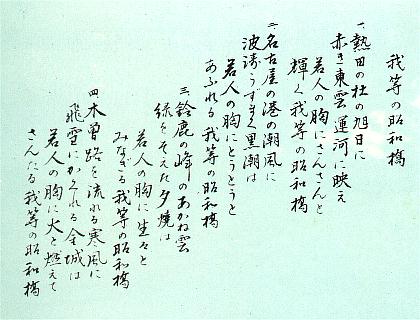 我等の昭和橋
一、熱田の杜の旭日に
赤き東雲運河に映え
若人の胸にさんさんと
輝く我等の昭和橋
二、名古屋の港の潮風に
波涛うずまく黒潮は
若人の胸にとうとうと
あふれる我等の昭和橋
三、鈴鹿の峰のあかね雲
緑をそえた夕焼は
若人の胸に生々と
みなぎる我等の昭和橋
四、木曽路を流れる寒風に
飛雪にかくれる金城は
若人の胸に火と燃えて
さんたる我等の昭和橋